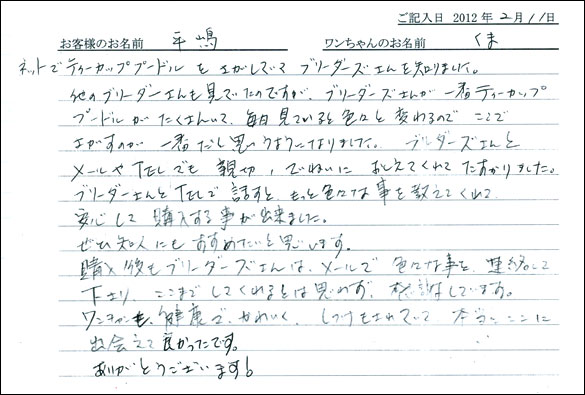 ご記入日 2012年2月11日
お客様のお名前 平嶋 ワンちゃんのお名前 くま
ネットでティーカッププードルをさがしていてブリーダーズさんを知りました。
他のブリーダーさんも見ていたのですが、ブリーダーズさんが一番ティーカップ
プードルがたくさんいて、毎日見ていると色々と変わるのでここで
さがすのが一番だと思うようになりました。ブリーダーズさんと
メールやTELでも親切、ていねいにおしえてくれてたすかりました。
ブリーダーさんとTELで話すともっと色々な事を教えてくれて
安心して購入する事が出来ました。
ぜひ知人にもおすすめたいと思います。
購入後もブリーダーズさんは、メールで色々な事を、連絡して
下さり、ここまでしてくれるとは思わず、感謝しています。
ワンチャンも、健康で、かわいく、しつけもされていて本当、ここに
出会えて良かったです。
ありがとうございます!